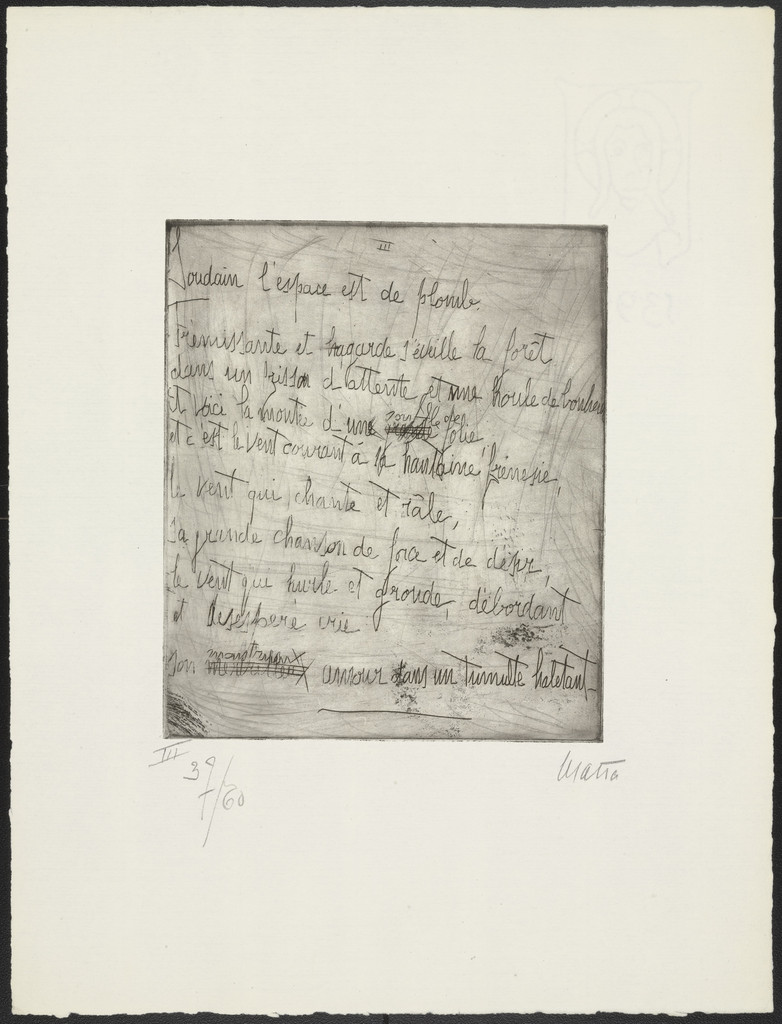 III
Soudain l'espace est de plomb.
Frémissante et hagarde s'éveille la forêt
dans un frisson d'attente et une houle de
souffle de
Et voici la monte d'une folie
et c'est le vent courant à sa hautaine frénésie,
le vent qui chante et râle,
sa grande chanson de force et de
le vent qui hurle et gronde, débordant
et désespéré crie :
son amour dans un tumulte haletant
III
39/60
Matta